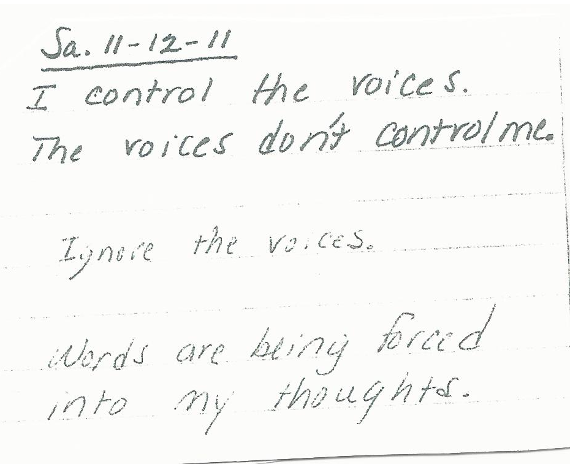 Sa. 11-12-11
I control the voices.
The voices don't control me.
Ignore the voices.
Words are being forced
into my thoughts.